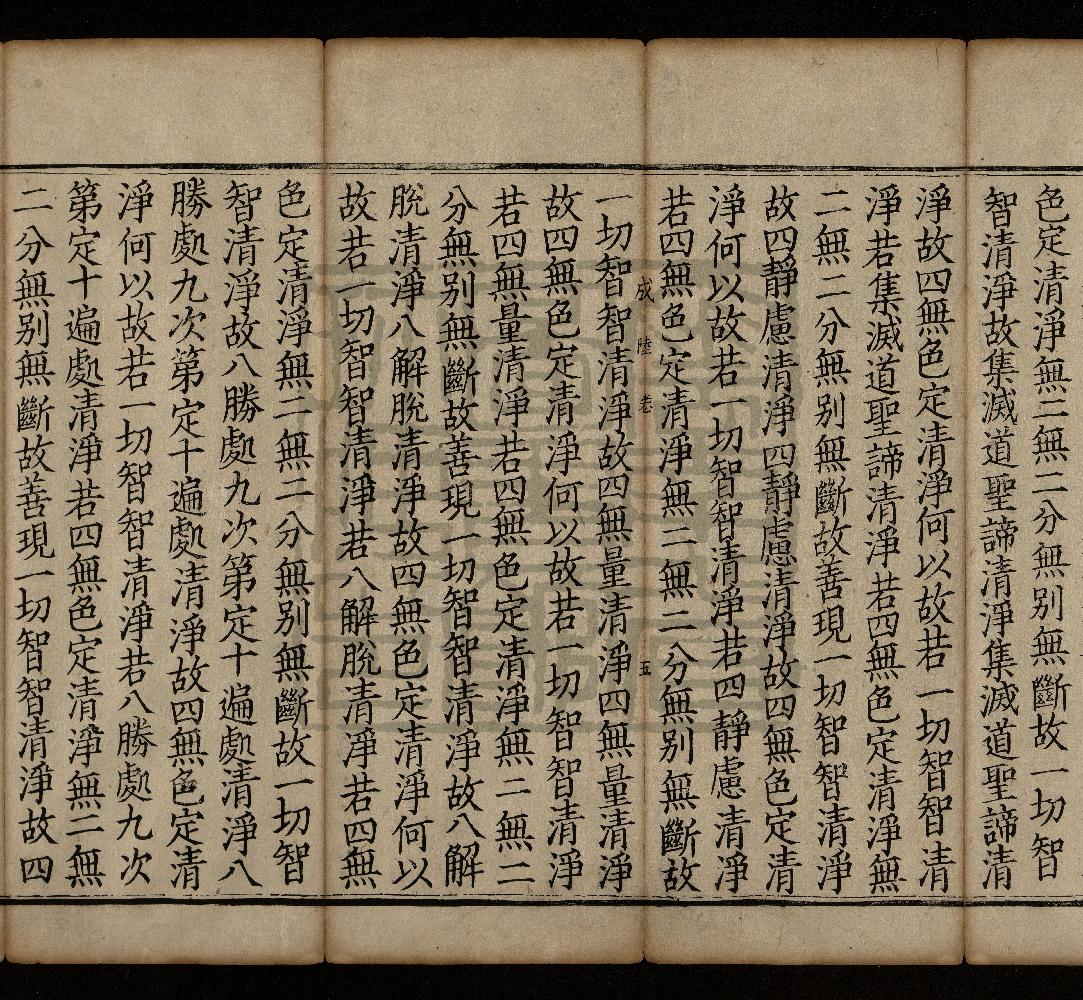 色定清淨無二無二分無别無斷故一切智
智清淨故集滅道聖諦清淨集滅道聖諦清
淨故四無色定清淨何以故若一切智智清
淨若集滅道聖諦清淨若四無色定清淨無
二無二分無别無斷故善現一切智智清淨
故四靜慮清淨四靜慮清淨故四無色定清
淨何以故若一切智智清淨若四靜慮清淨
若四無色定清淨無二無二分無别無斷故
成 陸卷 五
一切智智清淨故四無量清淨四無量清淨
故四無色定清淨何以故若一切智智清淨
若四無量清淨若四無色定清淨無二無二
分無别無斷故善現一切智智清淨故八解
脫清淨八解脫清淨故四無色定清淨何以
故若一切智智清淨若八解脫清淨若四無
色定清淨無二無二分無别無斷故一切智
智清淨故八勝處九次第定十遍處清淨八
勝處九次第定十遍處清淨故四無色定清
淨何以故若一切智智清淨若八勝處九次
第定十遍處清淨若四無色定清淨無二無
二分無别無斷故善現一切智智清淨故四